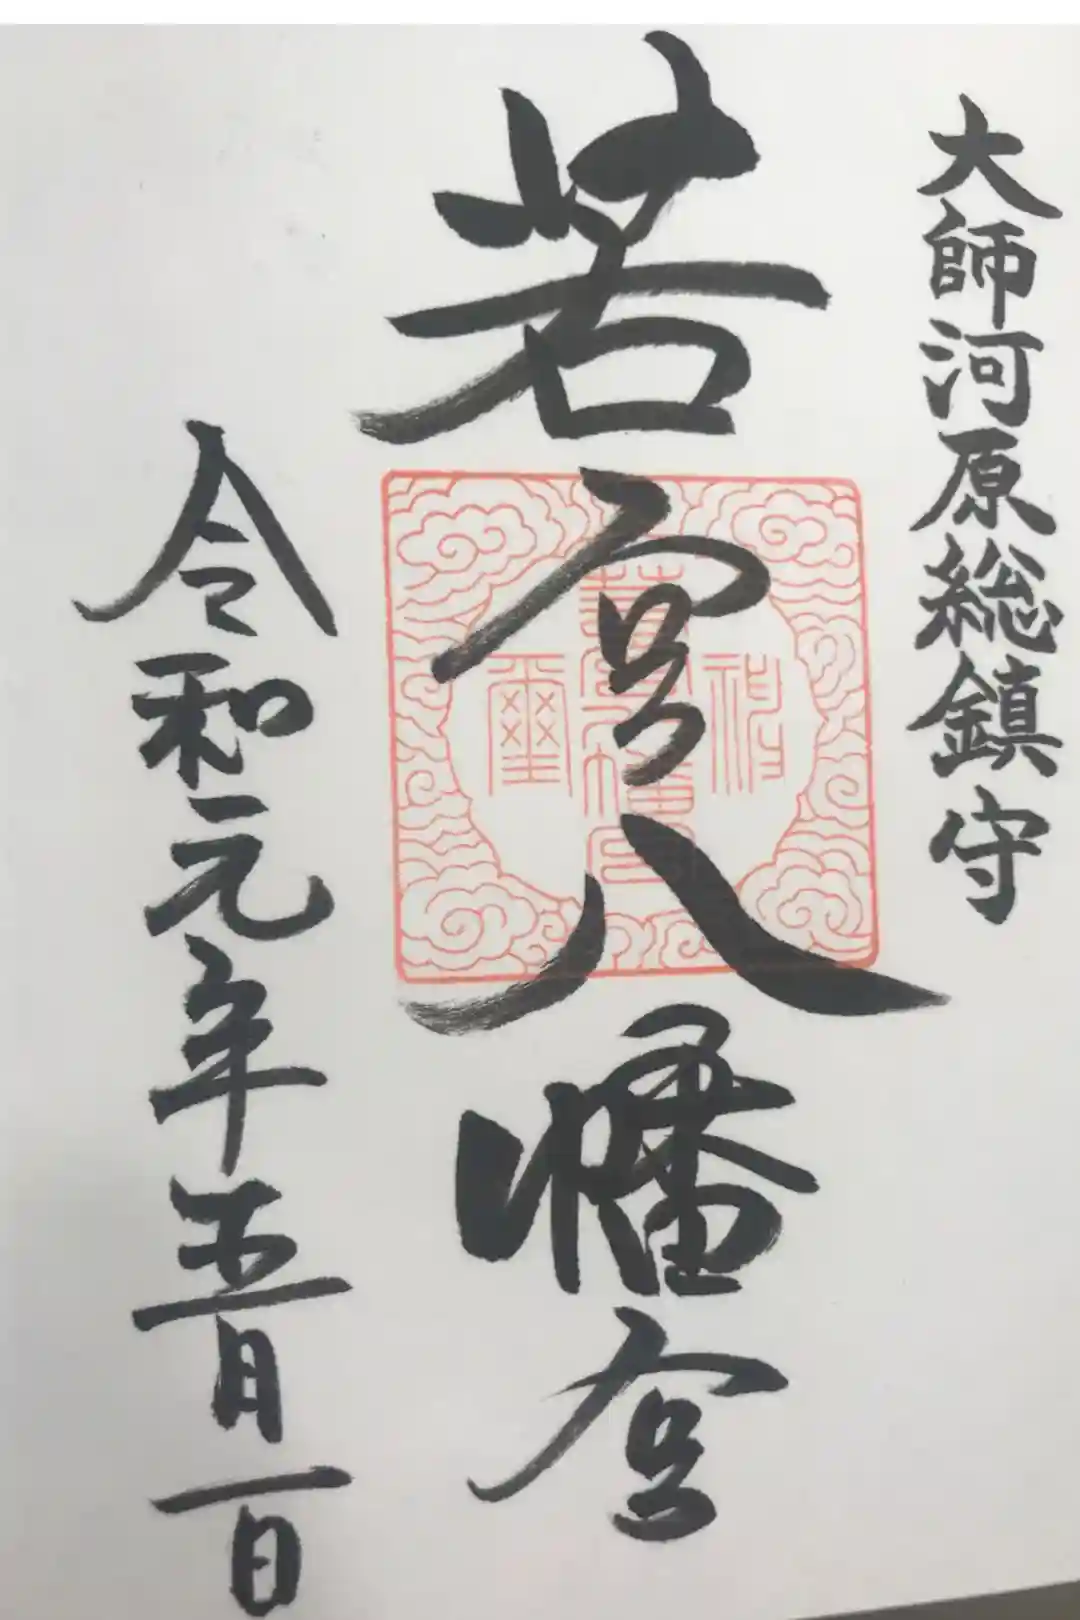 大師河原総鎮守
若宮八幡宮
令和元年五月一日